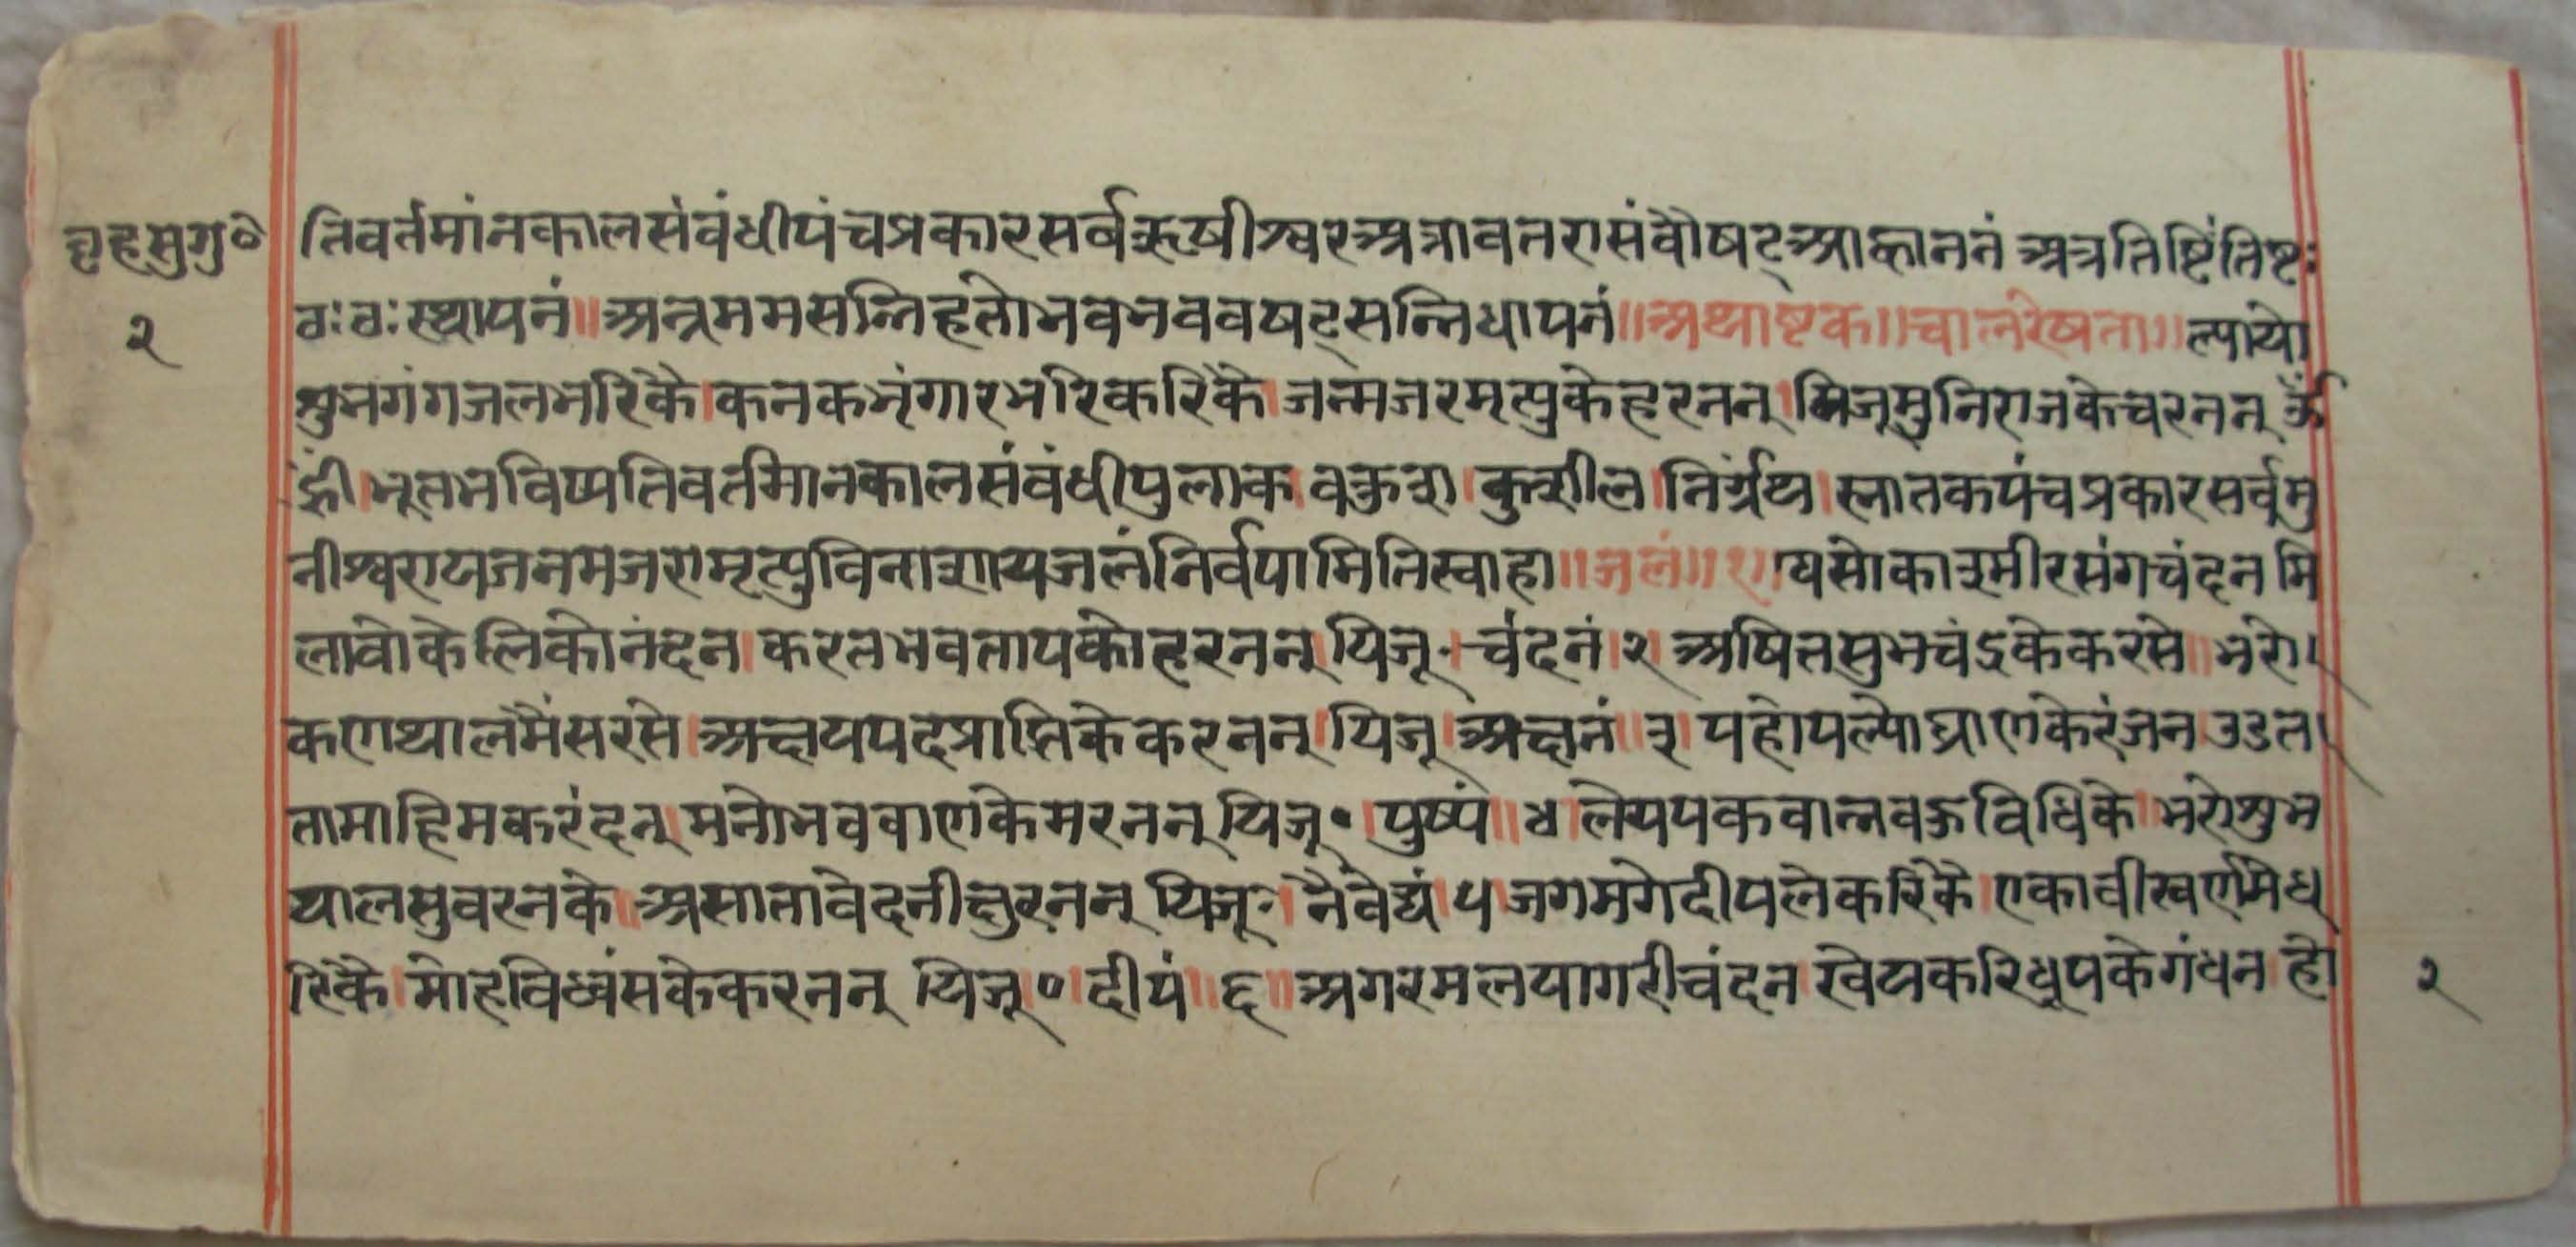 बृहसुगु॰
२
तिवर्तमांनकालसंवंधीपंचप्रकारसर्वऋषीश्वरअत्रावतरासंवौषट्आह्वाननंअत्रतिष्टिंतिष्टः
ठःठःस्थापनं॥अत्रममसन्निहतोभवभववषट्सन्निधापनं॥अथाष्टक॥चालरेषता॥ल्यायो
शुभगंगजलभरिकै।कनकभृंगारभरिकरिकै।जन्मजरमृत्युकेहरनन्।यिजूमुनिराजकेचरनन्ॐ
ह्रीं।भूतभविष्यतिवर्तमानकालसंवंधीपुलाक।वकुश।कुशील।निर्ग्रंथ।स्नातकपंचप्रकारसर्वमु
नीश्वरायजनमजरामृत्युविनाशायजलंनिर्वपामितिस्वाहा॥जलं॥१॥घसोकाश्मीरसंगचंदनमि
लावोकेलिकोनंदन।करतभवतापकोहरनन्।यिजू॰।चंदनं।२।अषितसुभचंद्रकेकरसे॥भरो।
कणथालमैंसरसे।अक्षयपदप्राप्तिकेकरनन्।यिजू।अक्षतं॥३।पहोपल्योघ्राणकेरंजन।उडत।
तामाहिमकरंदन्।मनोभववाणकेमरनन्यिजू॰।पुष्पं॥४।लेयपकवान्नवहुविधिके॥भरोशुभ
थालसुवरनके॥असातावेदनीक्षुरनन्यिजू॰।नैवेद्यं।५।जगमगेदीपलेकरिकै।रकावीस्वर्णमेध
रिकै।मोहविध्वंसकेकरनन्यिजू॰।दीपं॥६॥अगरमलयागरीचंदन।खेयकरिधूपकेगंधन।हो
२